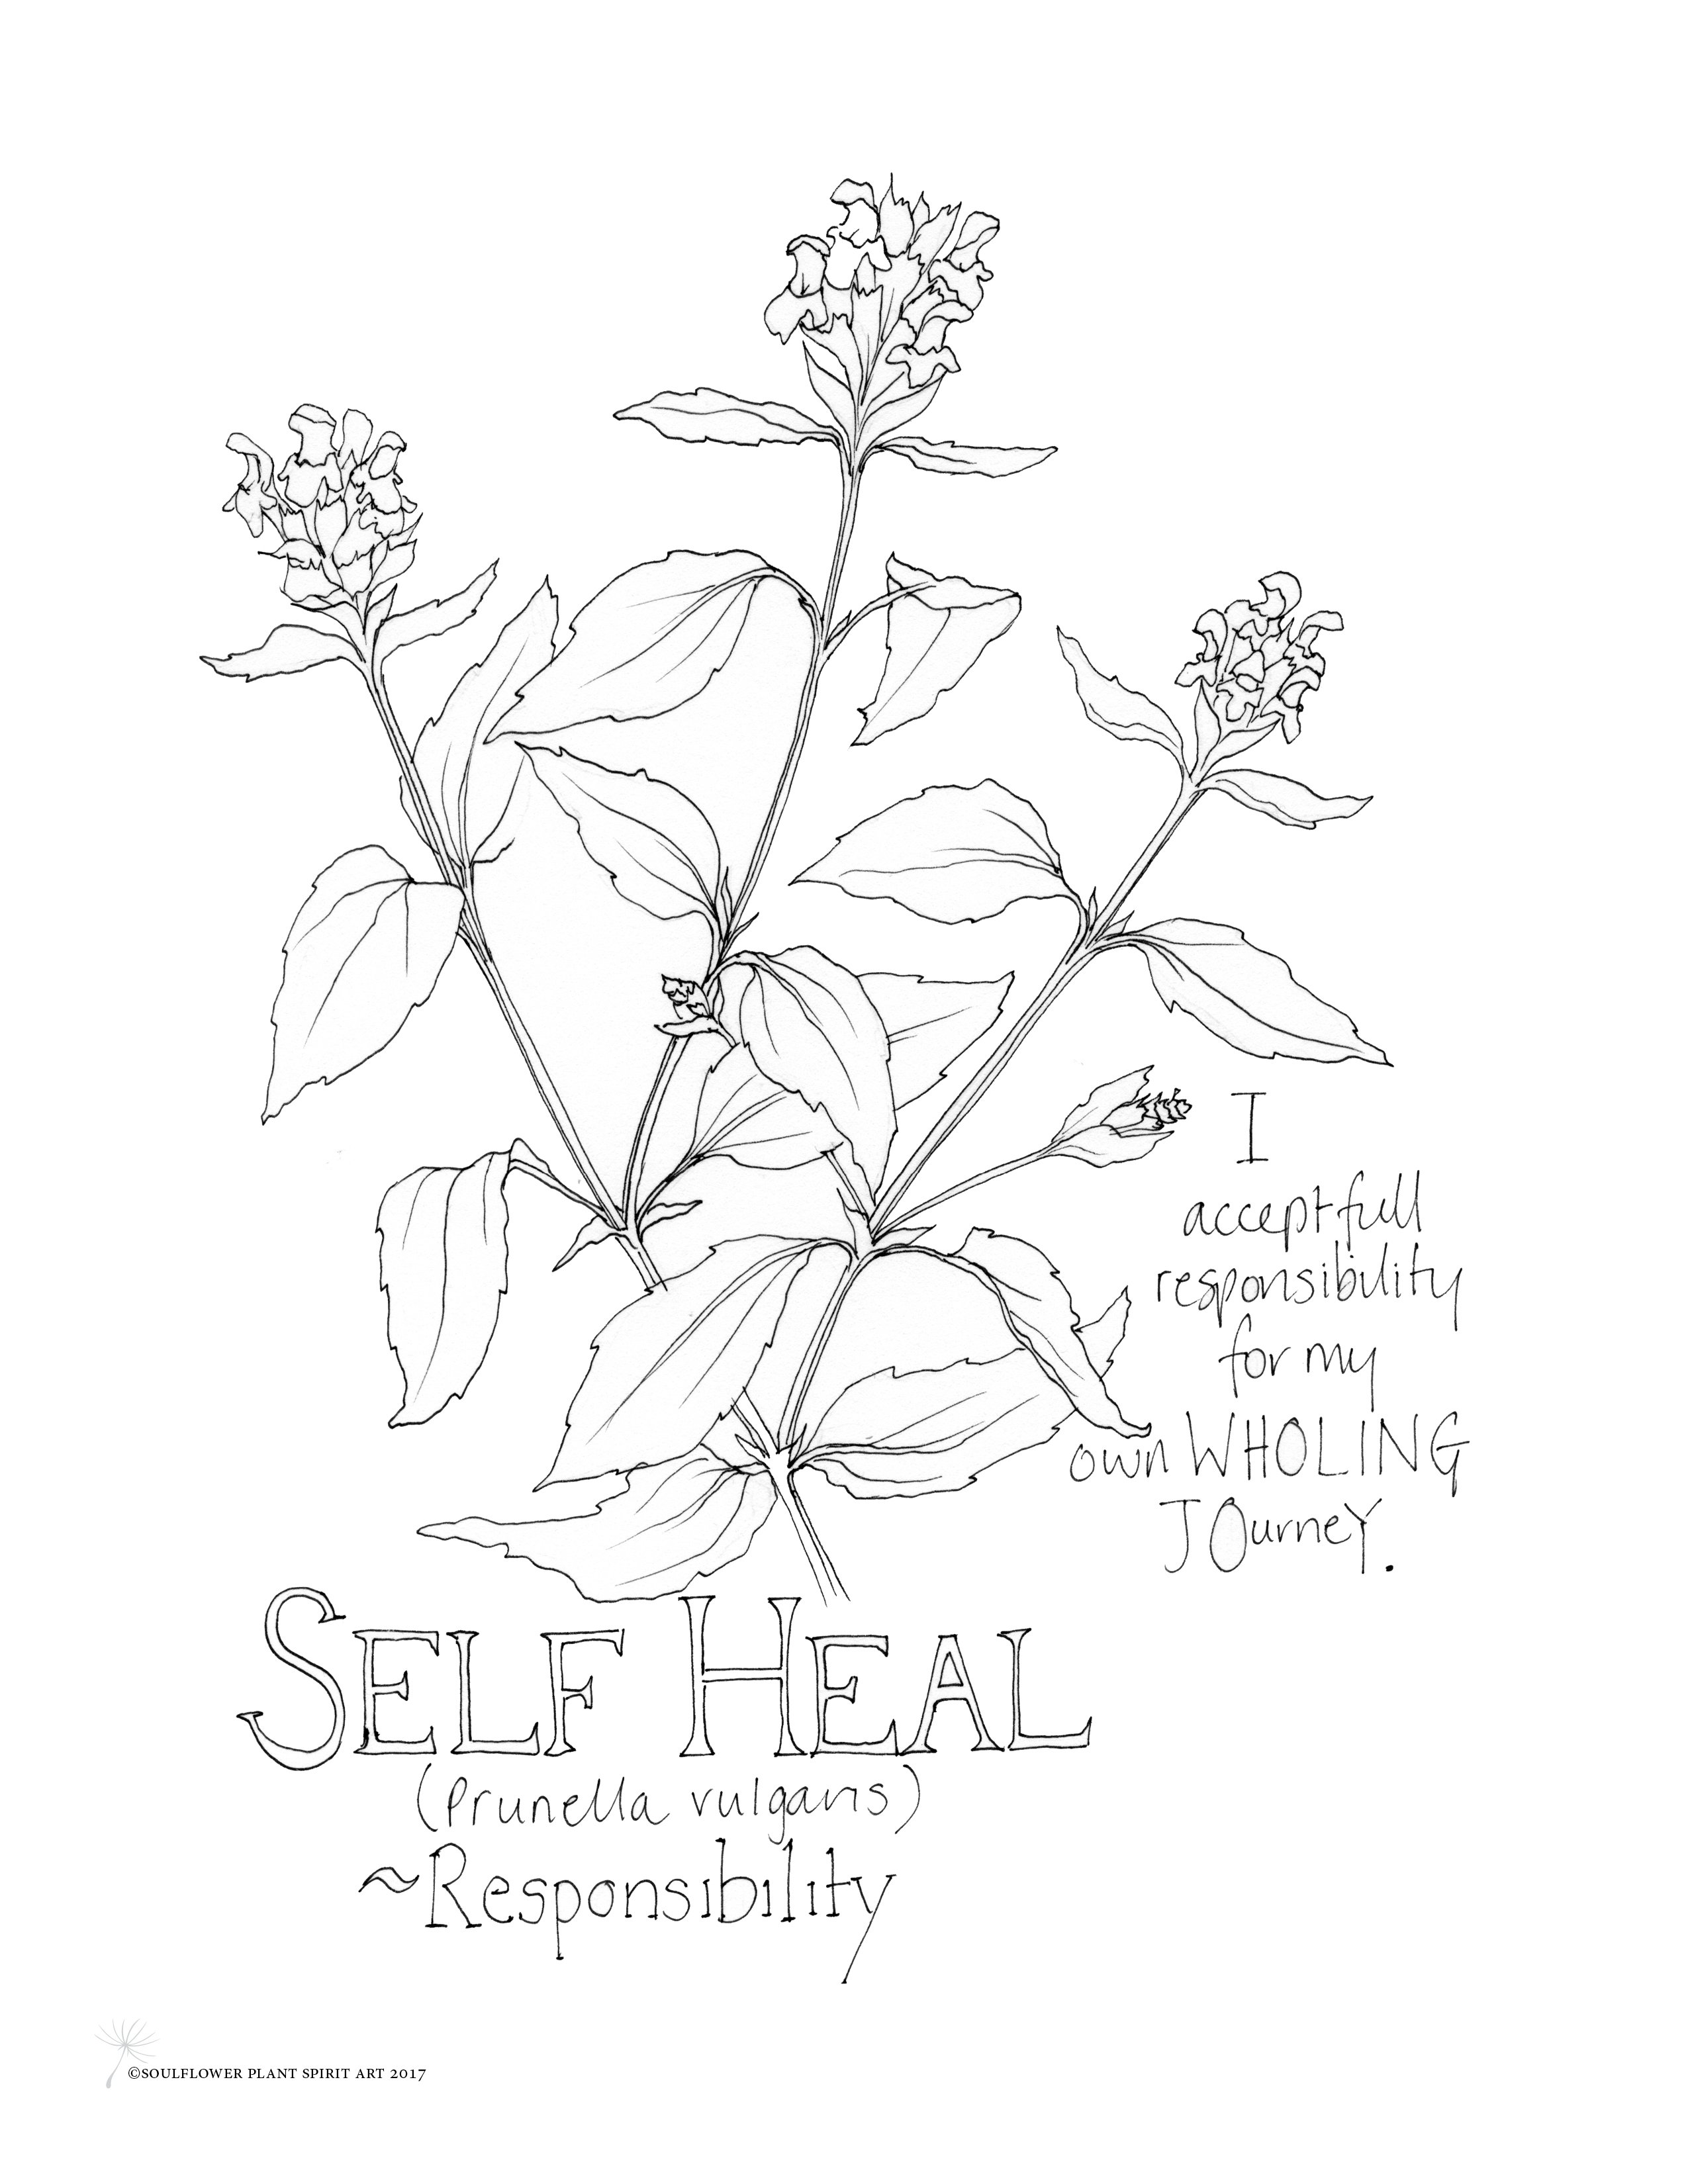 I
accept full
responsibility
for my
own WHOLING
JOurneY.
SELF HEAL
(Prunella vulgaris)
~Responsibility
©SOULFLOWER PLANT SPIRIT ART 2017